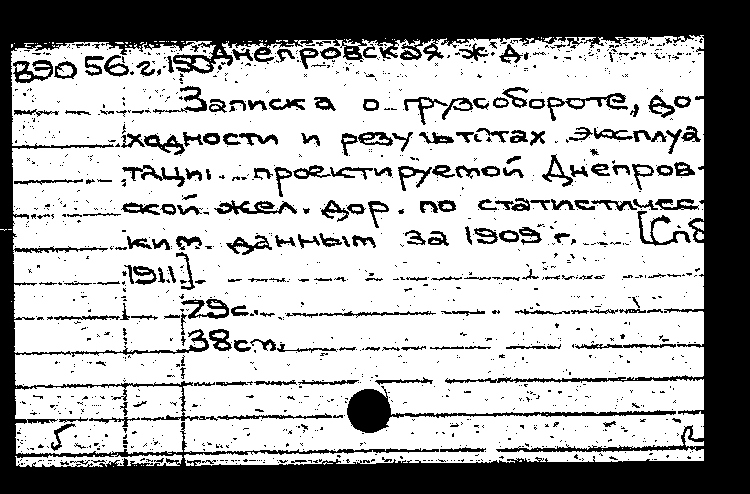 Днепровская ж.д.
ВЭО 56.г.150.
Записка о грузообороте, до-
ходности и результатах эксплуа
тации проектируемой Днепров-
ской жел. дор. по статистичес-
ким данным за 1909 г. [Спб
1911].
79с.
38см.
5